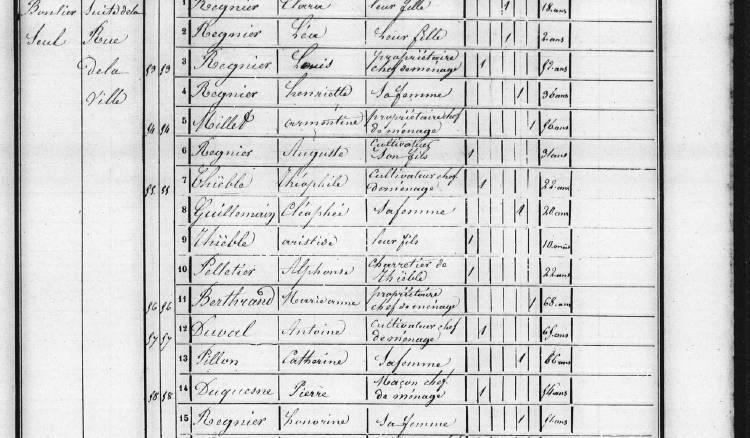 Bontier Suite de la
Seul Rue
de la
Ville
1 Regnier Clara leur fille 1 18 ans
2 Regnier Léa Leur fille 1 2 ans
53 53 3 Regnier Louis propriétaire chef de ménage 1 52 ans
4 Regnier henriette Sa femme 1 36 ans
54 54 5 Millet armontine propriétaire chef de ménage 1 56 ans
6 Regnier Auguste Cultivateur Son fils 1 31 ans
55 55 7 Thiëble Théophile Cultivateur chef de ménage 1 22 ans
8 Guillemain Cléophée Sa femme 1 20 ans
9 Thiëble aristide leur fils 1 10 mois
10 Pelletier Alphonse Charretier de Thiëble 1 22 ans
56 56 11 Berthrand Marie anne propriétaire chef de ménage 1 68 ans
57 57 12 Duval Antoine Cultivateur chef de ménage 1 65 ans
13 Pillon Catherine Sa femme 1 66 ans
58 58 14 Duquesne Pierre Maçon chef de ménage 1 54 ans
15 Regnier honorine Sa femme 1